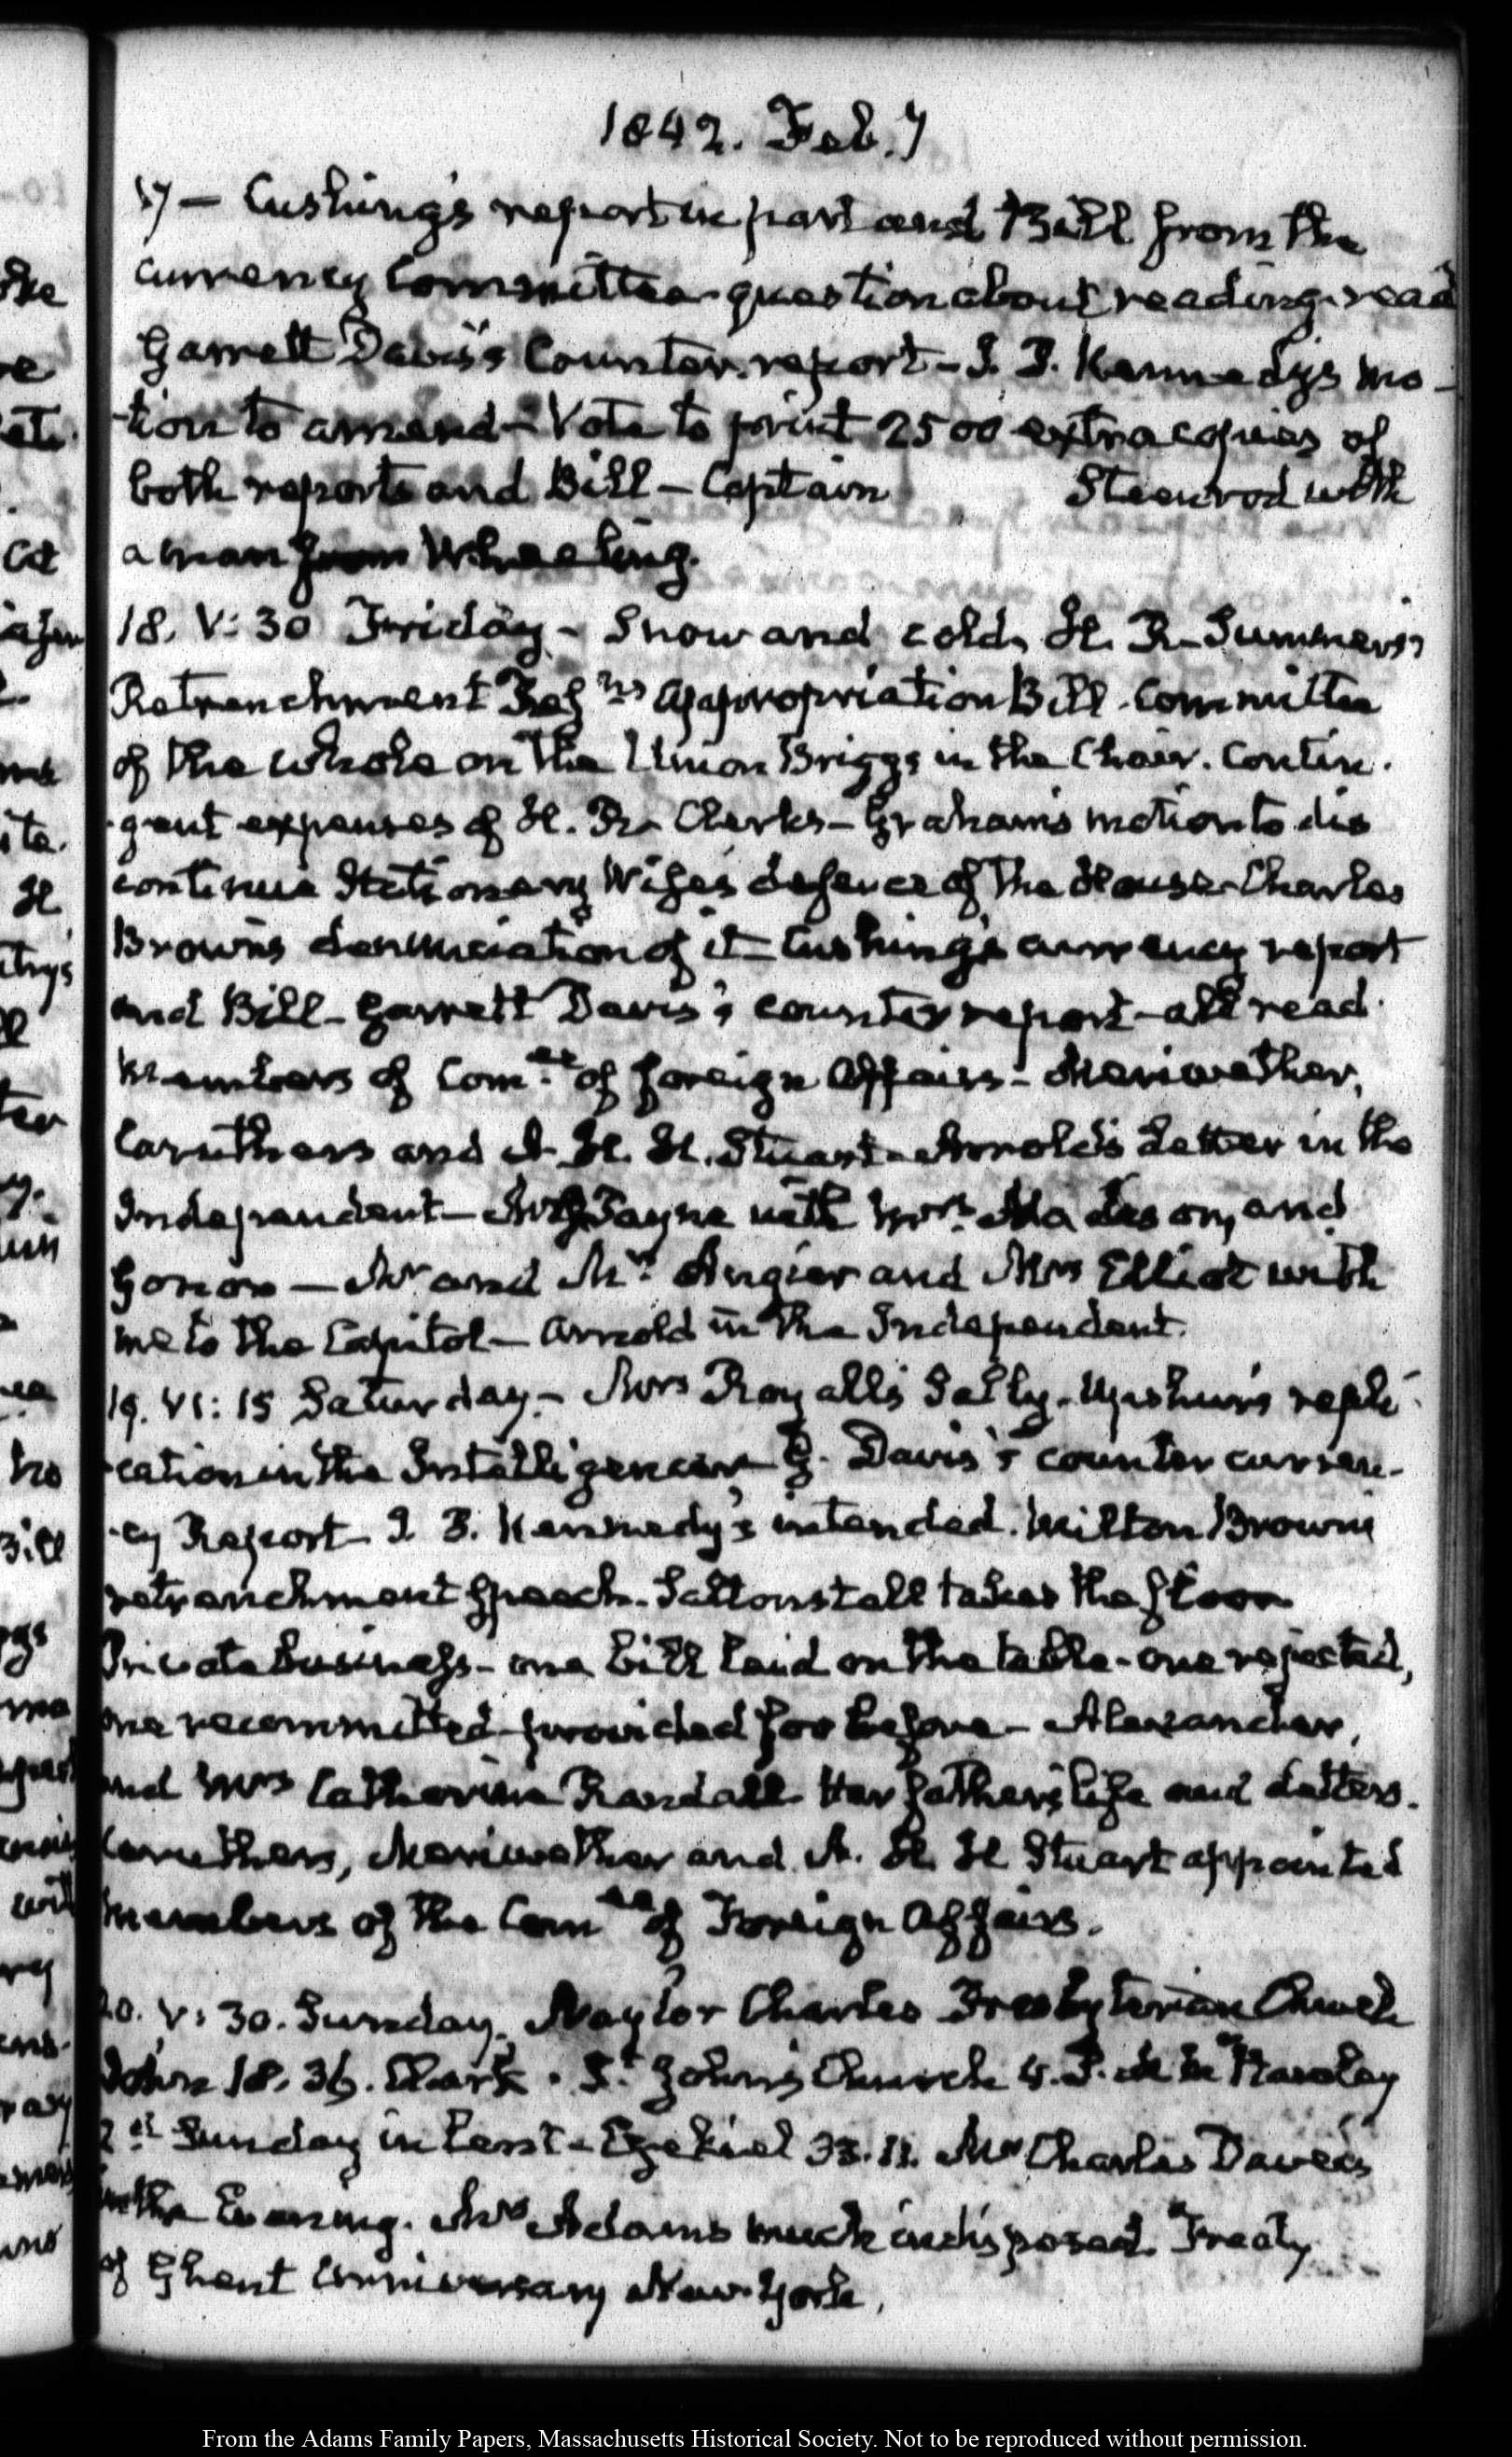 1842. Feb. 7
17 — Cushing's report in part and Bill from the
currency Committee question about reading. read
Garrett Davis's Counter report — J. P. Kennedy's mo-
tion to amend — Vote to print 2500 extra copies of
both reports and Bill — Captain Steenrod with
a man from Wheeling.
18. V: 30 Friday — Snow and cold. H. R. Summers's
Retrenchment Resns Appropriation Bill. Committee
of the whole on the Union Briggs in the Chair. Contin-
gent expenses of H. R. Clerks — Graham's motion to dis
continue Stationary Wise's defence of the House Charles
Brown's denunciation of it — Cushing's currency report
and Bill — Garrett Davis's counter report — all read.
Members of Comee of foreign Affairs — Meriwether,
Caruthers and A. H. H. Stuart — Arnold's Letter in the
Independent — Payne with Mrs Madison, and
— Mr and Mrs Angier and Mrs Elliot with
me to the Capitol — Arnold in the Independent.
19. VI: 15 Saturday — Mrs Royall's Sally. Upshur's repli-
cation in the Intelligencer G. Davis's counter curren-
cy Report J. P. Kennedy's intended. Milton Brown's
retrenchment Speech. Saltonstall takes the floor
Private business — one bill laid on the table — one rejected,
one recommitted provided for before — Alexander,
and Mrs Catherine Randall. Her father's life and Letters.
Caruthers, Meriwether and A. H. H. Stuart appointed
members of the Comee of Foreign Affairs.
20. V: 30. Sunday. Naylor Charles Presbyterian Church
John 18. 36. Clark. St. John's Church Hawley
2d Sunday in Lent — Ezekiel 33. 11. Mr Charles Daveis
in the Evening. Mrs Adams much indisposed. Treaty
of Ghent Anniversary New-York.
From the Adams Family Papers, Massachusetts Historical Society. Not to be reproduced without permission.